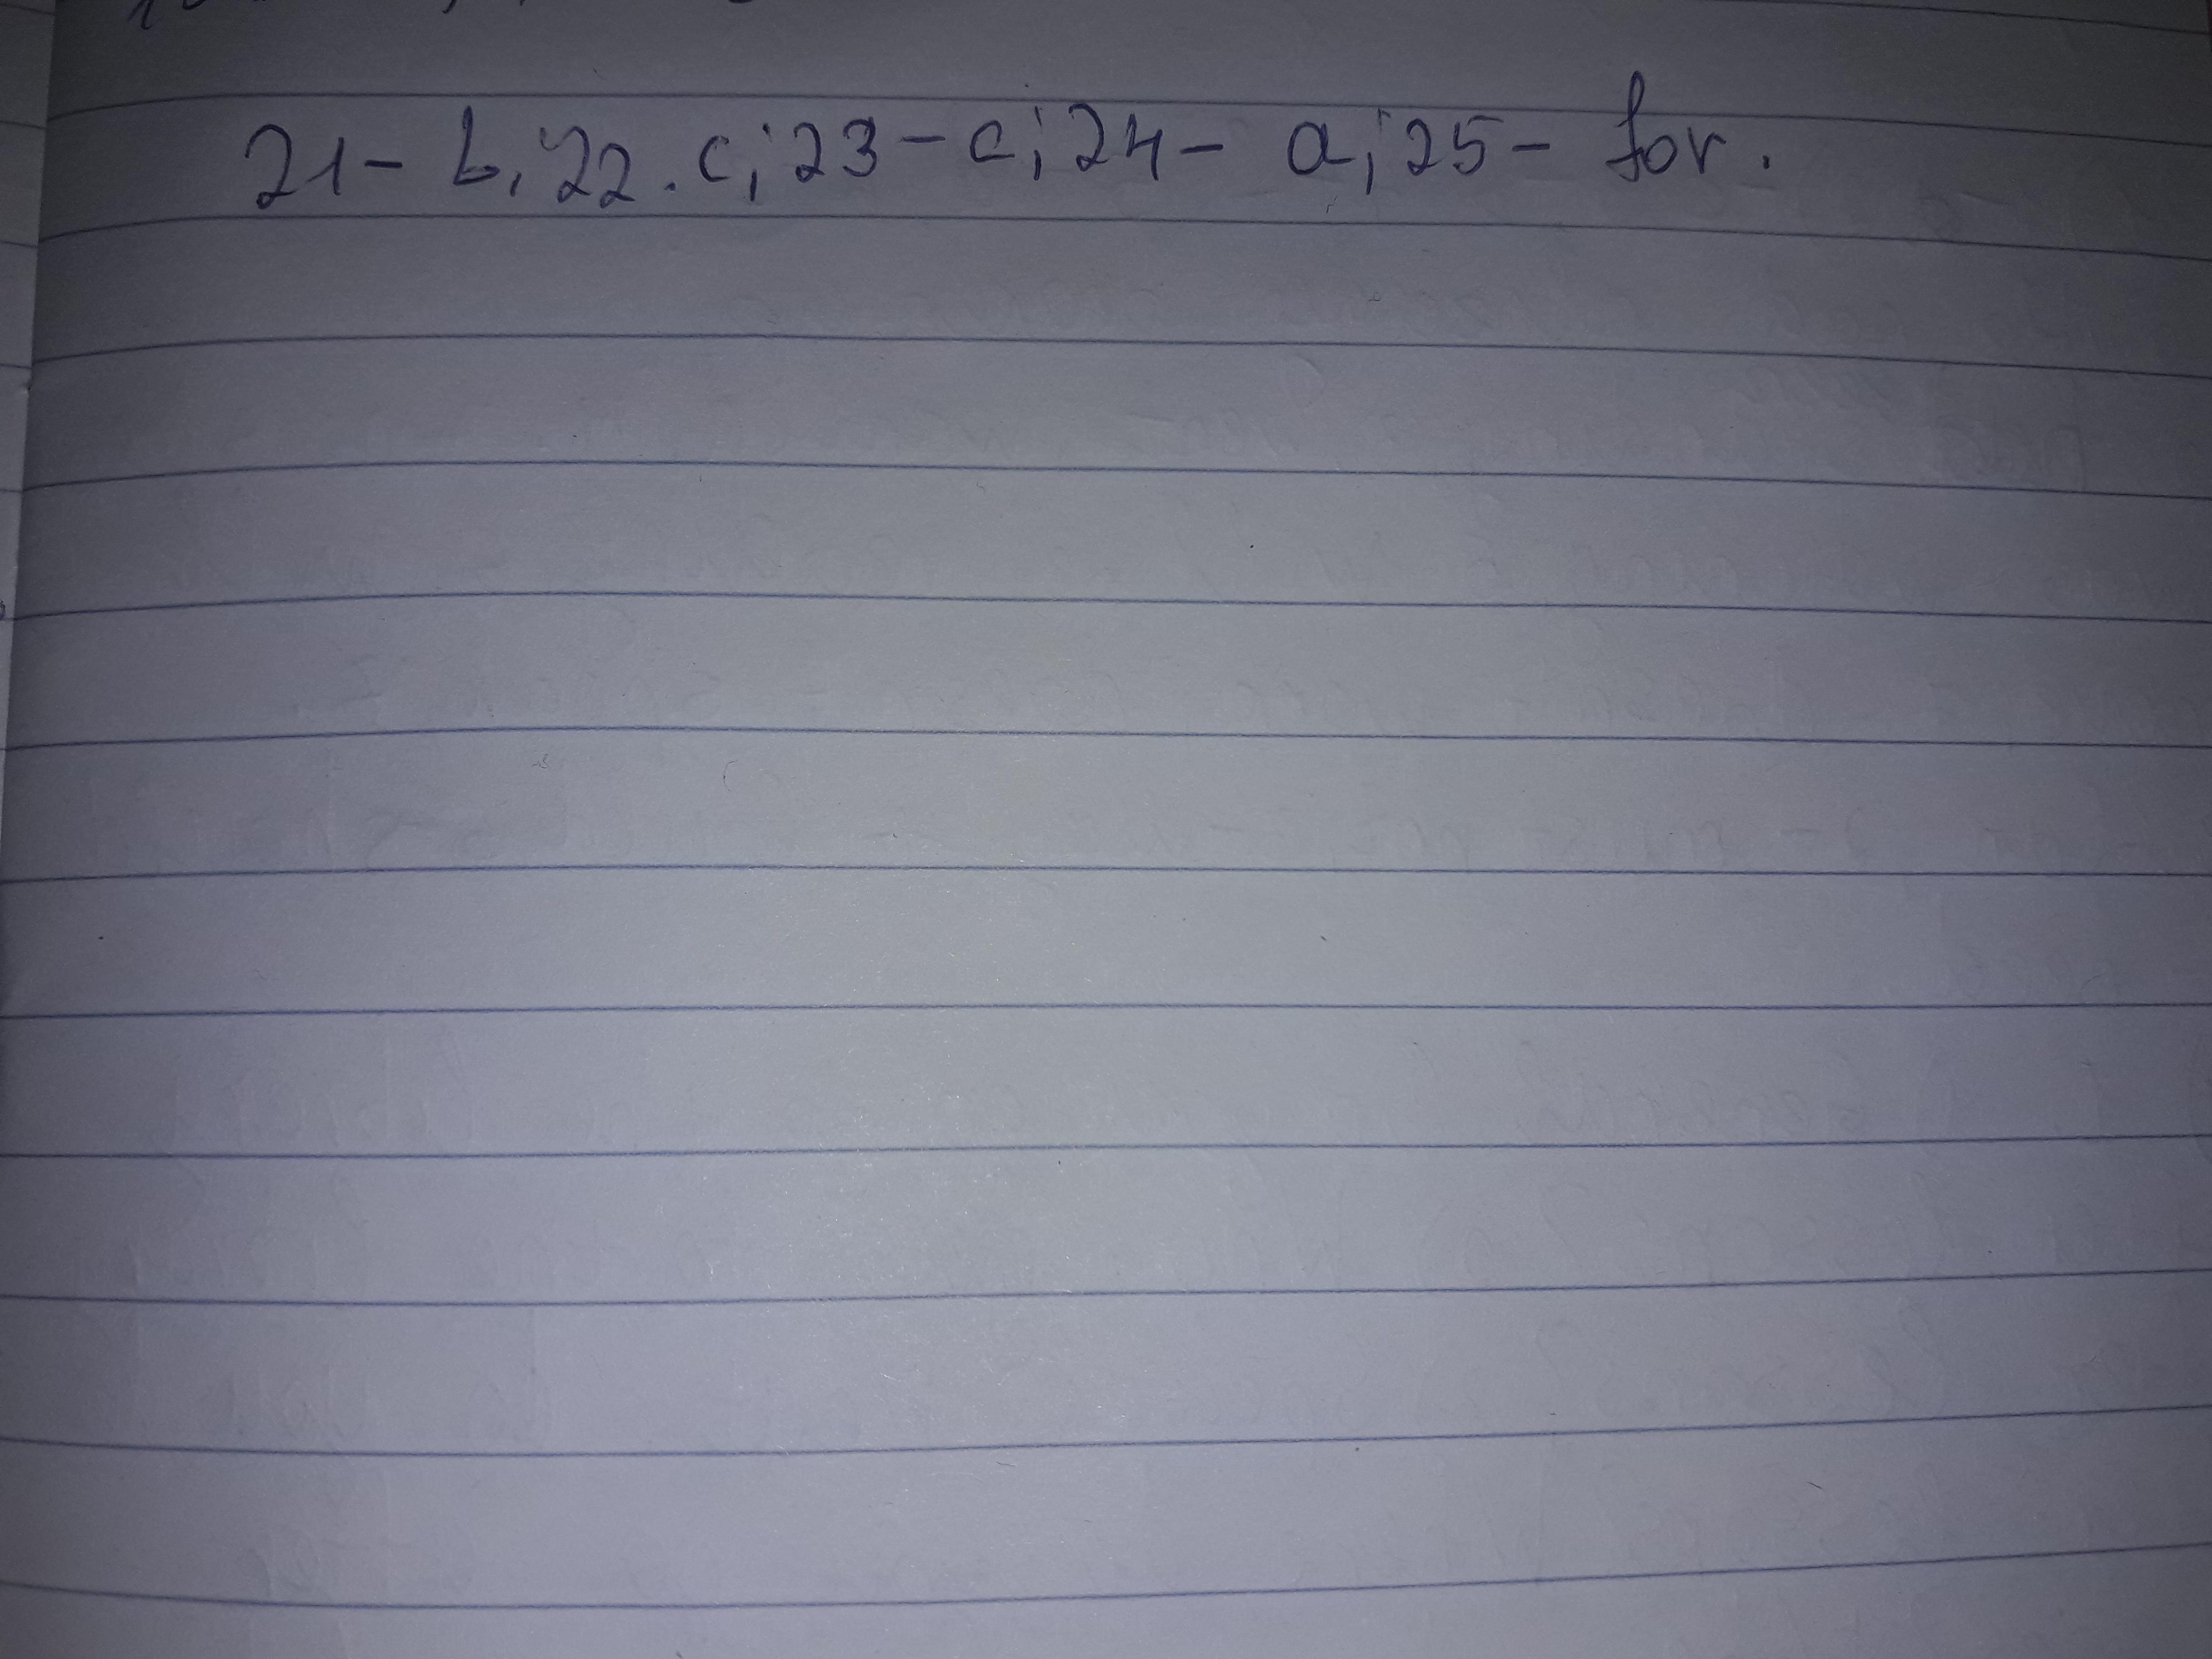 21- b, 22. c; 23 - c; 24 - a; 25 - for.